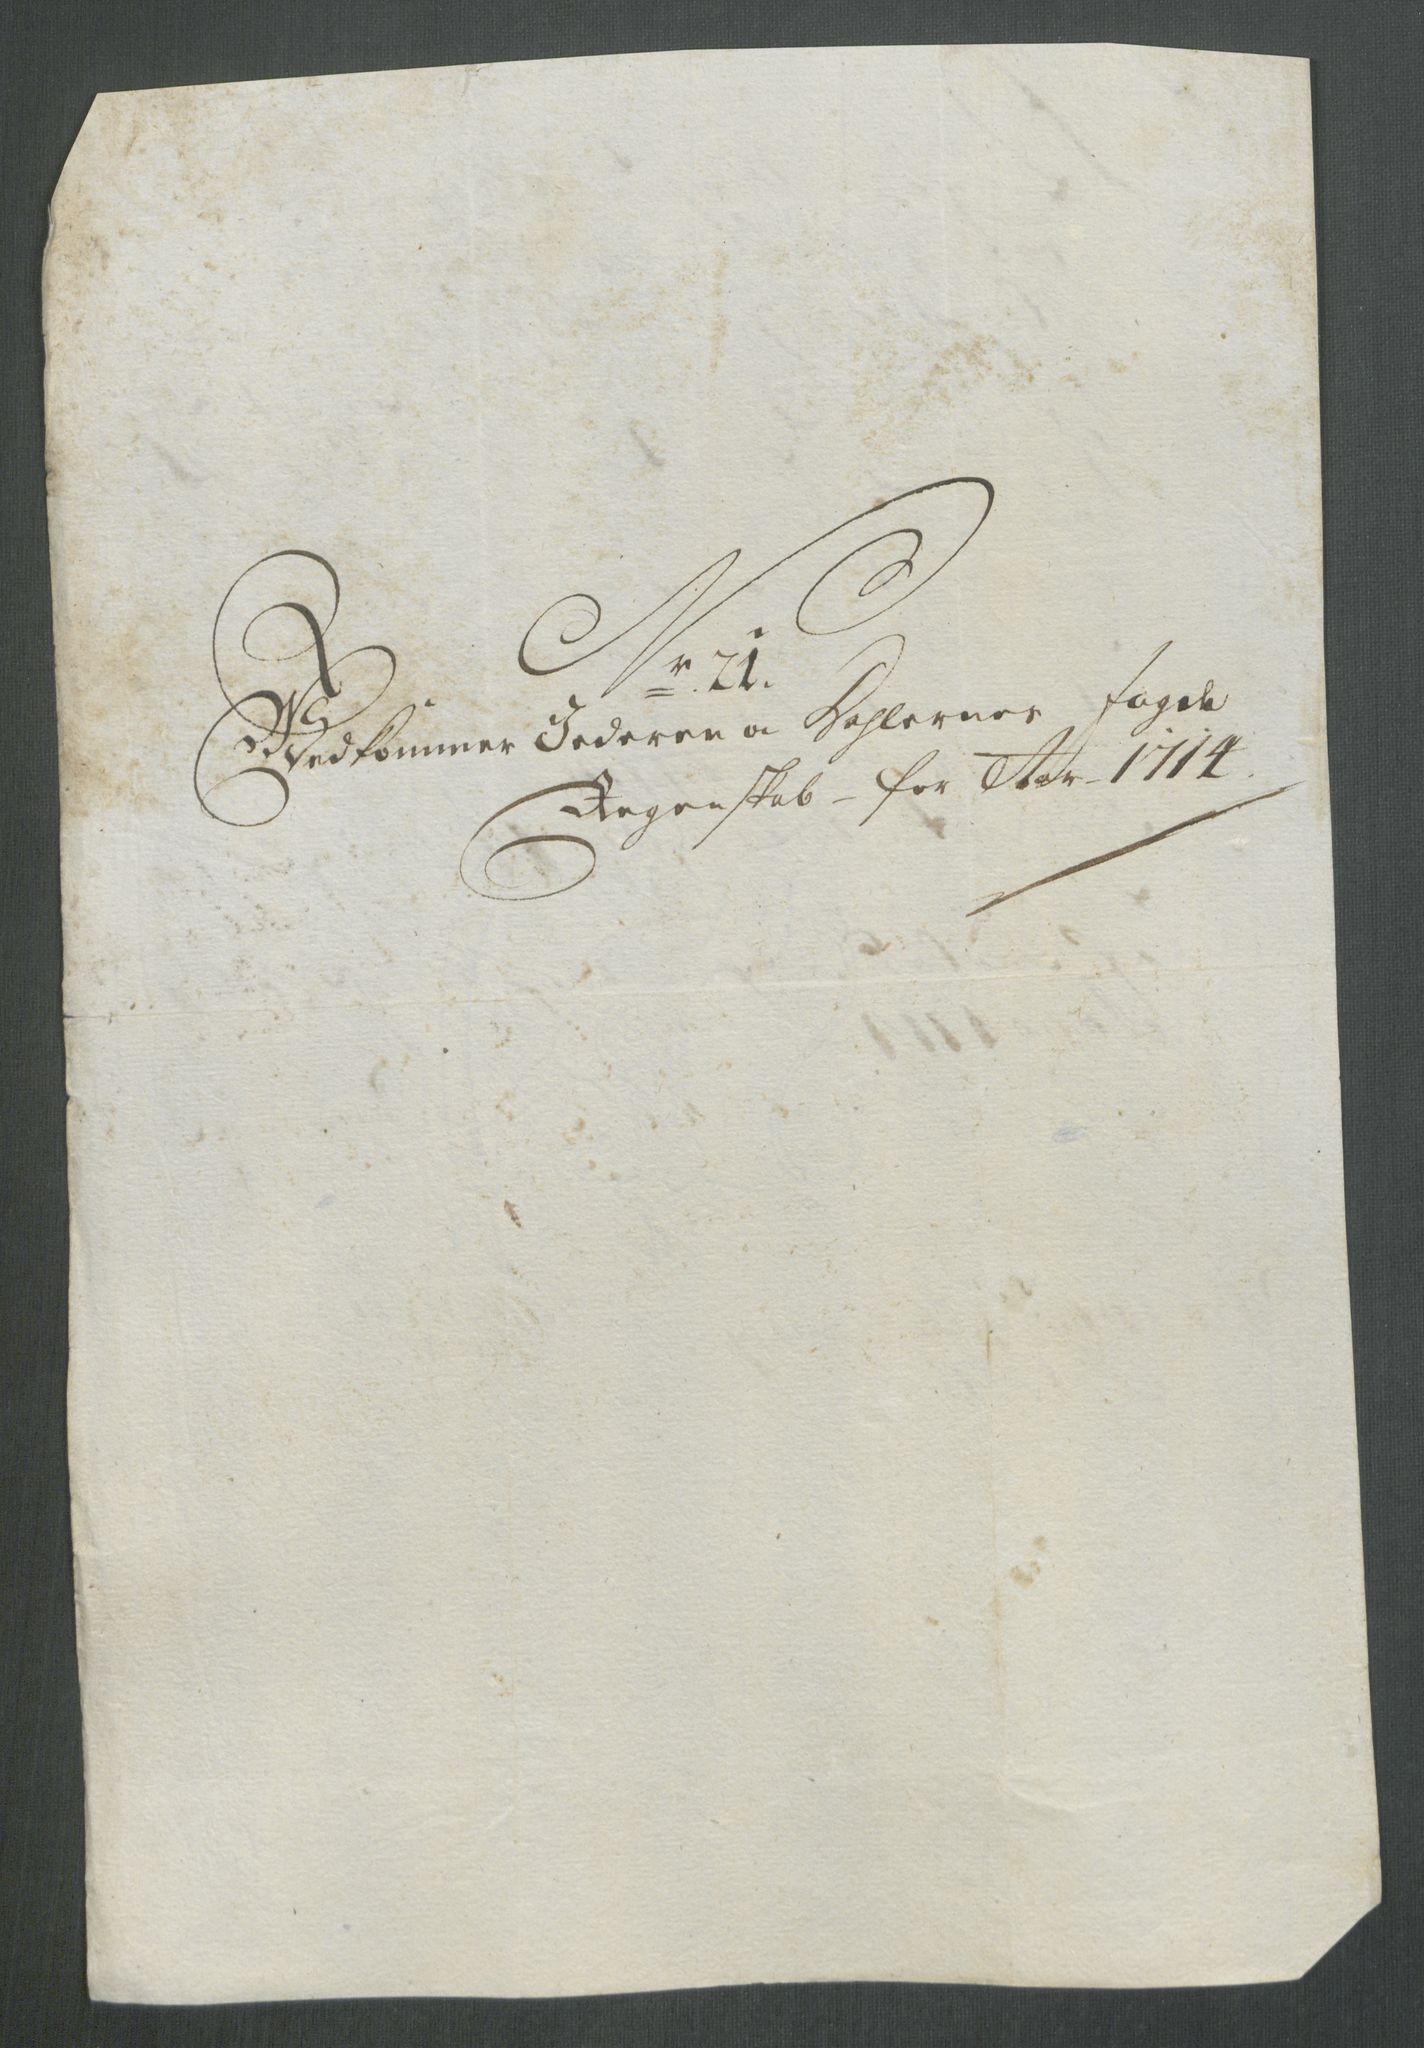 Nr. 21.
Vedkommer Jederen o Dahlernes fogde
Regenskab - for Aar - 1714.